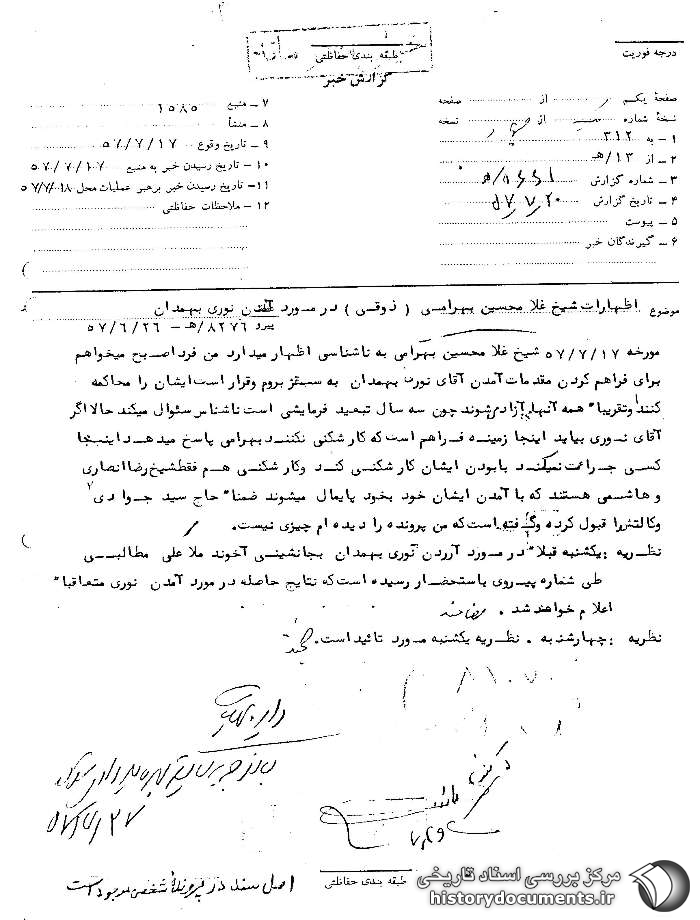 درجه فوریت
طبقه بندی حفاظتی
گزارش خبر
صفحهٔ یکم از صفحه
نسخهٔ شماره از نسخه
۱ – به ۳۱۲
۲ – از ۱۳/هـ
۳ – شماره گزارش
۴ – تاریخ گزارش ۵۷/۷/۲۰
۵ – پیوست
۶ – گیرندگان خبر
۷ – منبع ۱۵۸۵
۸ – منشأ
۹ – تاریخ وقوع ۵۷/۷/۱۷
۱۰ – تاریخ رسیدن خبر به منبع ۵۷/۷/۱۷
۱۱ – تاریخ رسیدن خبر برهبر عملیات محل ۵۷/۷/۱۸
۱۲ – ملاحظات حفاظتی
موضوع اظهارات شیخ غلا محسین بهرامی ( ذوقی ) در مورد آمدن نوری بهمدان
پیرو ۸۲۷۶/هـ – ۵۷/۶/۲۶
مورخه ۵۷/۷/۱۷ شیخ غلا محسین بهرامی به ناشناسی اظهار میدارد من فردا صبح میخواهم
برای فراهم کردن مقدمات آمدن آقای نوری بهمدان به سقز بروم وقرار است ایشان را محاکمه
کنند وتقریبا" همه آنها آزاد میشوند چون سه سال تبعید فرمایشی است ناشناس سئوال میکند حالا اگر
آقای نوری بیاید اینجا زمینه فراهم است که کار شکنی نکنند بهرامی پاسخ میدهد اینجا
کسی جراءت نمیکند بابودن ایشان کار شکنی کند وکار شکنی هم فقط شیخ رضا انصاری
و هاشمی هستند که با آمدن ایشان خود بخود پایمال میشوند ضمنا" حاج سید جوادی
وکالتش را قبول کرده وگفته است که من پرونده را دیده ام چیزی نیست.
نظریه : یکشنبه قبلا" در مورد آوردن نوری بهمدان بجانشینی آخوند ملا علی مطالبی
طی شماره پیروی باستحضار رسیده است که نتایج حاصله در مورد آمدن نوری متعاقبا"
اعلام خواهد شد .
نظریه : چهارشنبه . نظریه یکشنبه مورد تائید است.
۵۷/۷/۲۷
طبقه بندی حفاظتی
اصل سند در پرونده شخص موجود است
مرکز بررسی اسناد تاریخی
historydocuments.ir